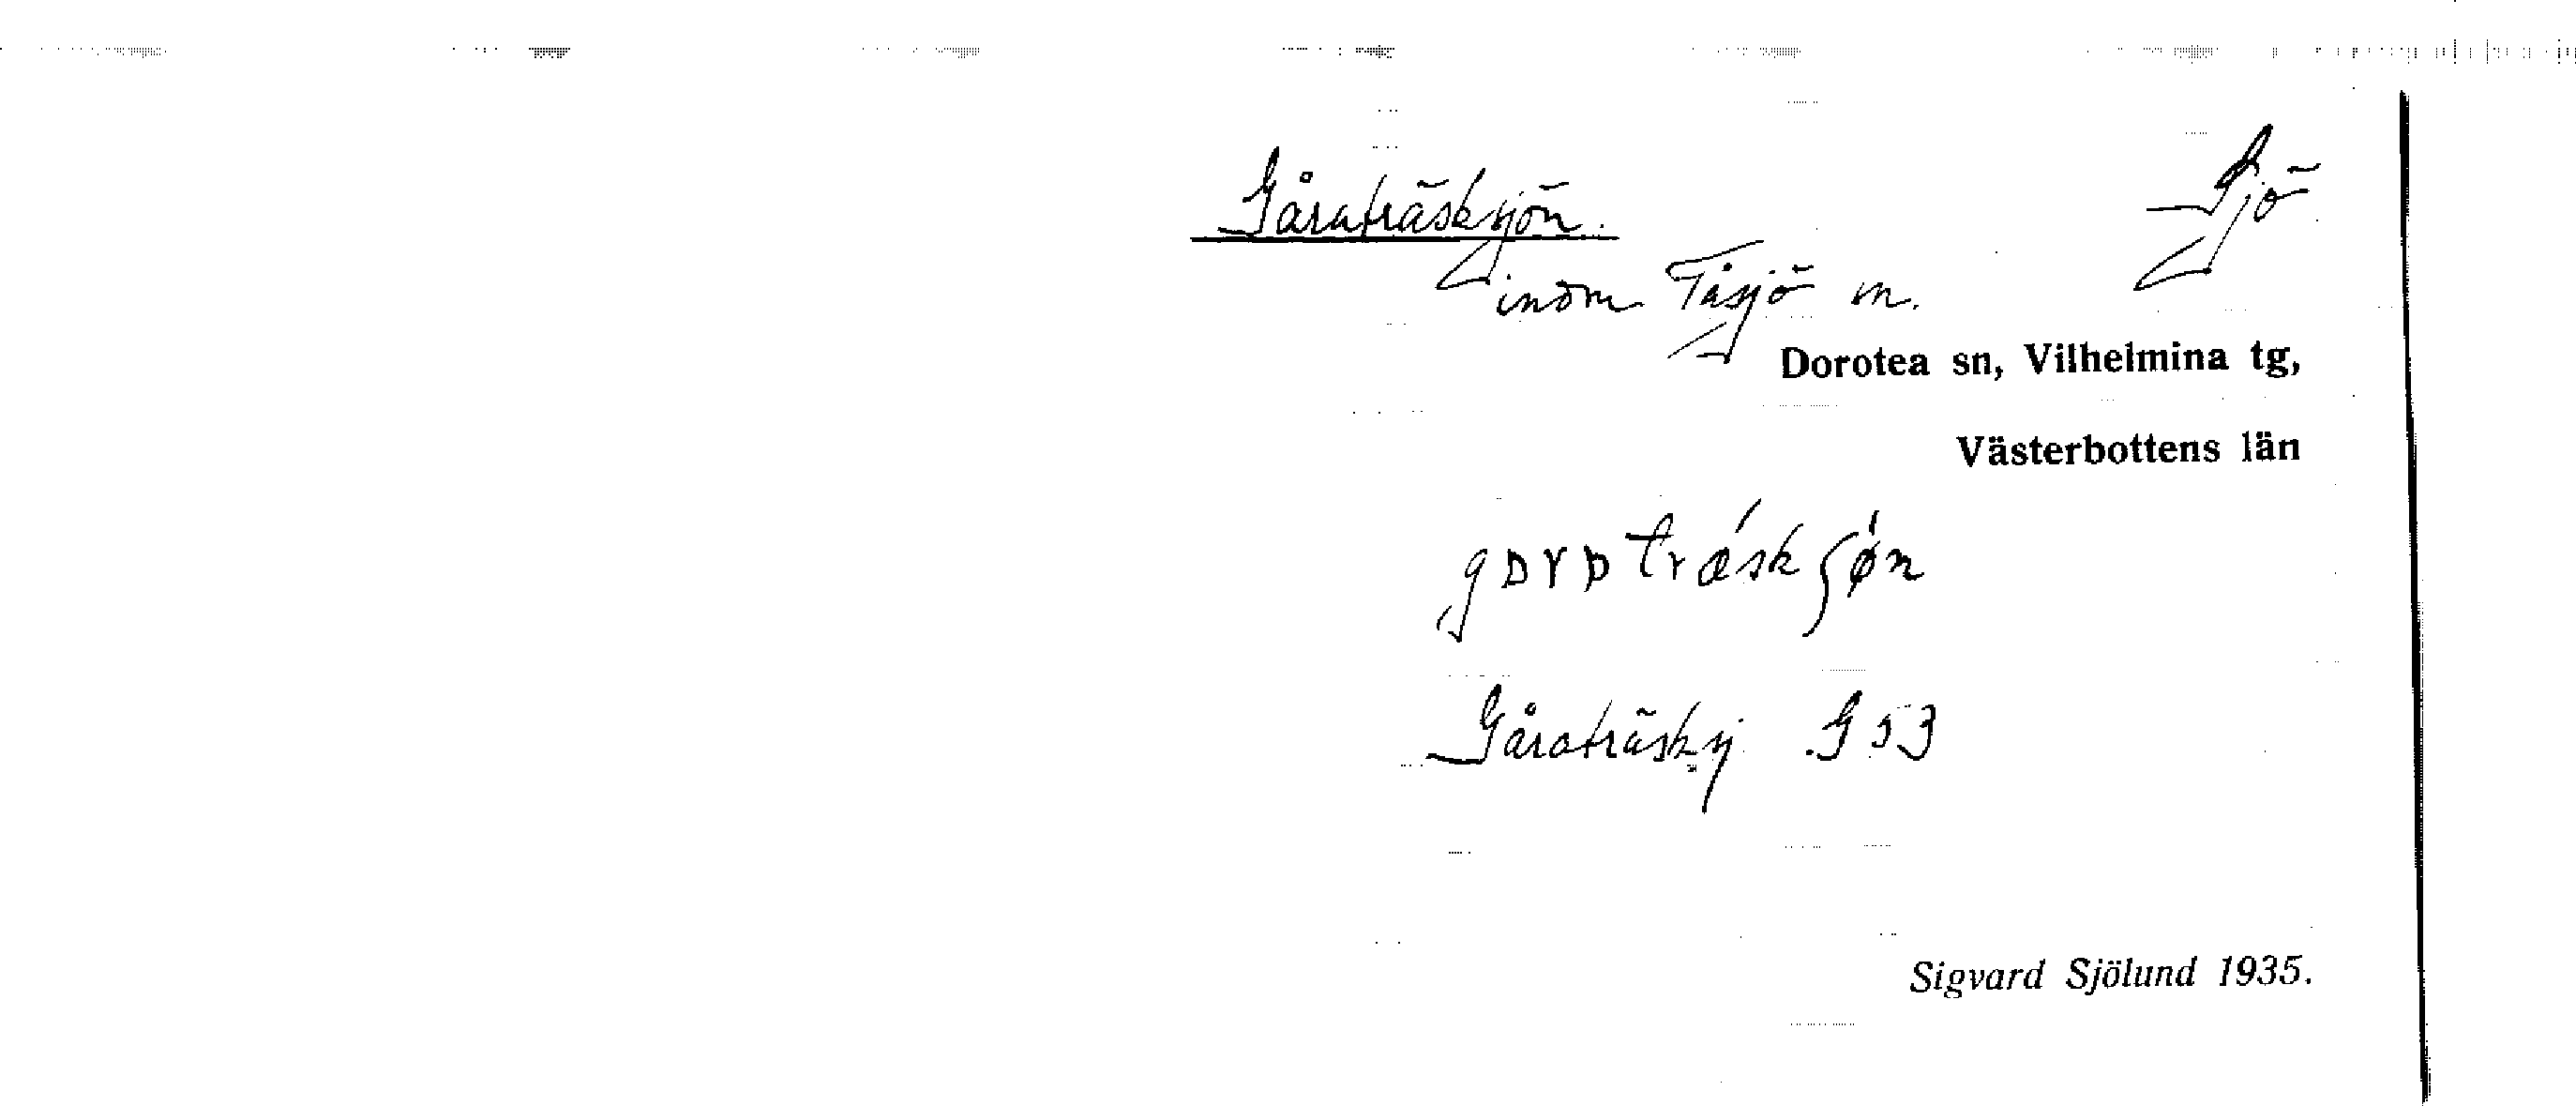 Gåraträsksjön. Sjö
inom Tåsjö m.
Dorotea sn, Vilhelmina tg,
Västerbottens län
Gåraträsksj. G 53
Sigvard Sjölund 1935.